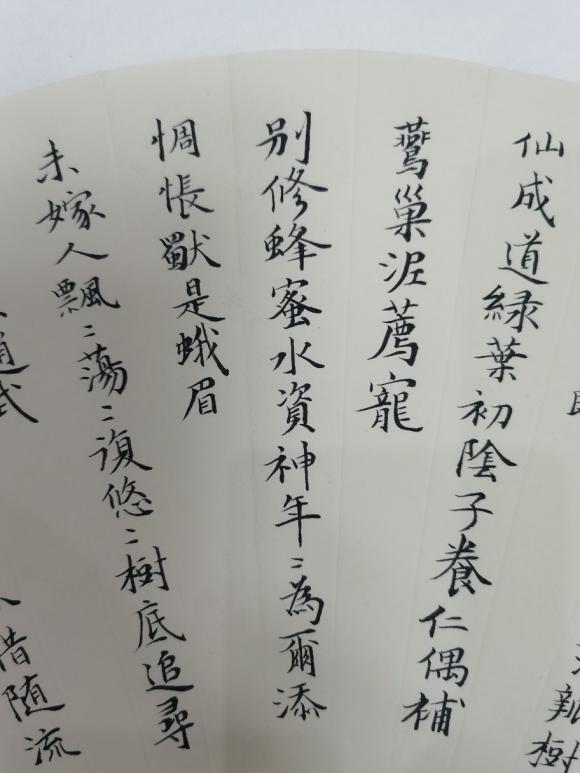 瓣樹
仙成道綠葉初陰子養仁偶補
鷰巢泥薦寵
別修蜂蜜水資神年〻為爾添
惆悵獸是蛾眉
未嫁人飄〻蕩〻復悠〻樹底追尋
通武
借隨流